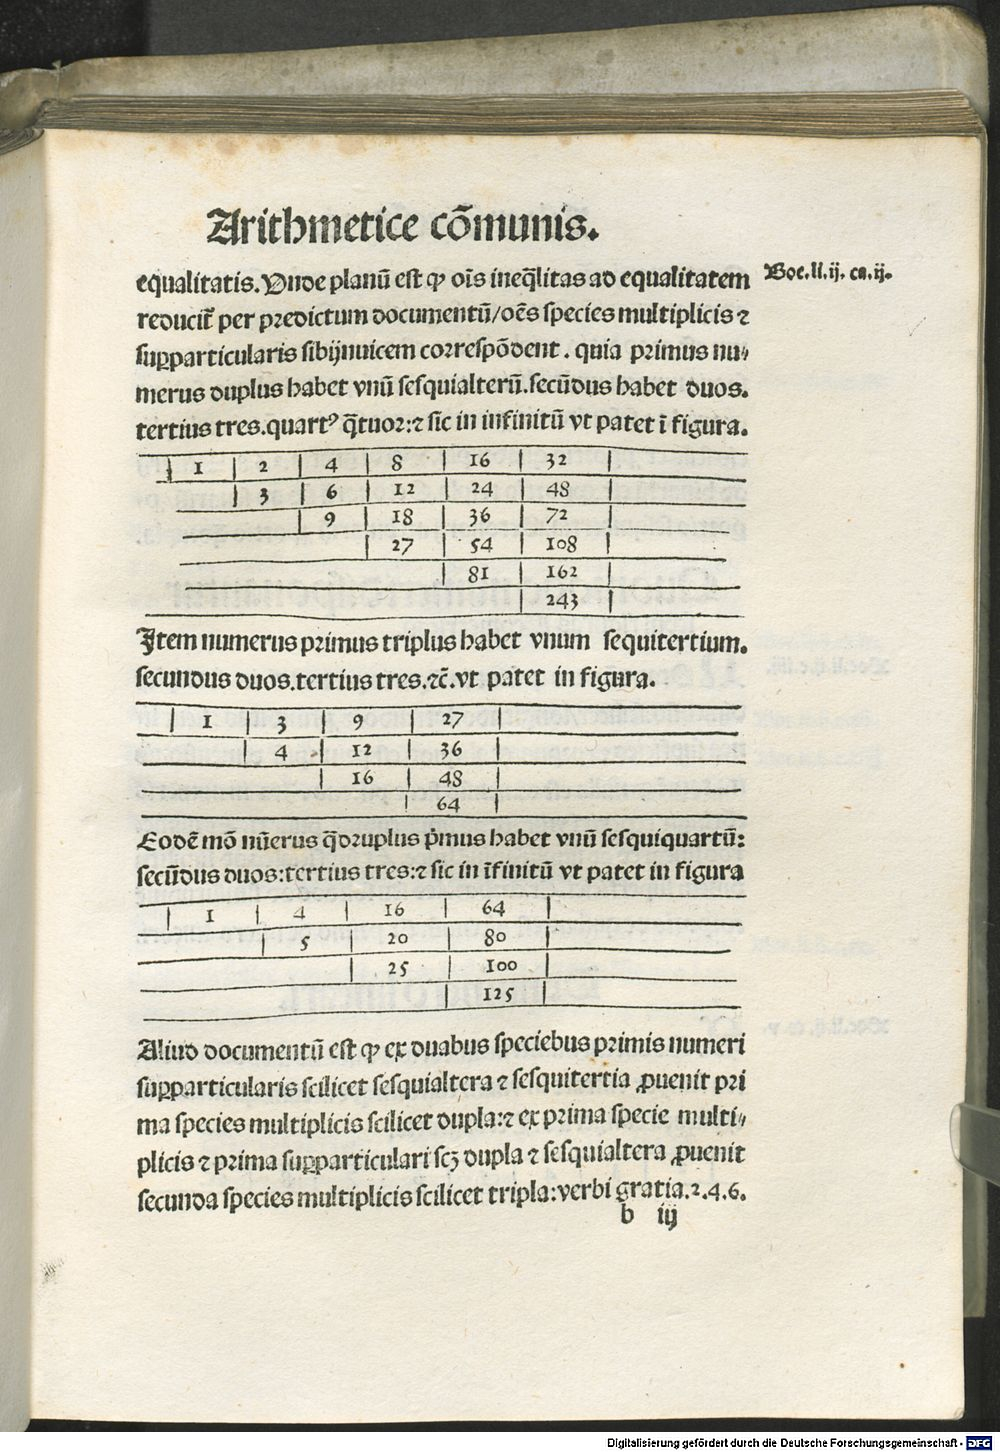 Arithmetice cõmunis.
equalitatis. Unde planũ est ꝙ oĩs ineq̃litas ad equalitatem
Boe. li. ij. ca. ij.
reducit᷑ per predictum documentũ/oẽs species multiplicis ⁊
suꝑparticularis sibijnuicem correspõdent. quia primus nu⸗
merus duplus habet vnũ sesquialterũ. secũdus habet duos.
tertius tres. quartꝰ q̃tuor: ⁊ sic in infinitũ vt patet ĩ figura.
1 | 2 | 4 | 8 | 16 | 32
3 | 6 | 12 | 24 | 48
9 | 18 | 36 | 72
27 | 54 | 108
81 | 162
243
Item numerus primus triplus habet vnum sequitertium.
secundus duos. tertius tres. ⁊c̃. vt patet in figura.
1 | 3 | 9 | 27
4 | 12 | 36
16 | 48
64
Eodẽ mõ nũerus q̃druplus p̃mus habet vnũ sesquiquartũ:
secũdus duos: tertius tres: ⁊ sic in ĩfinitũ vt patet in figura
1 | 4 | 16 | 64
5 | 20 | 80
25 | 100
125
Aliud documentũ est ꝙ ex duabus speciebus primis numeri
suꝑparticularis scilicet sesquialtera ⁊ sesquitertia ꝓuenit pri
ma species multiplicis scilicet dupla: ⁊ ex prima specie multi⸗
plicis ⁊ prima suꝑparticulari scꝫ dupla ⁊ sesquialtera ꝓuenit
secunda species multiplicis scilicet tripla: verbi gratia. 2. 4. 6.
b iij
Digitalisierung gefördert durch die Deutsche Forschungsgemeinschaft - DFG